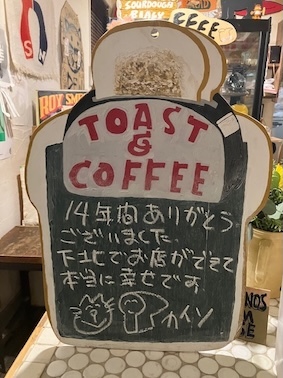 SOURDOUGH
BIALY
TOAST
&
COFFEE
14年間ありがとう
ございました.
下北でお店ができて
本当に幸せです
カイソ